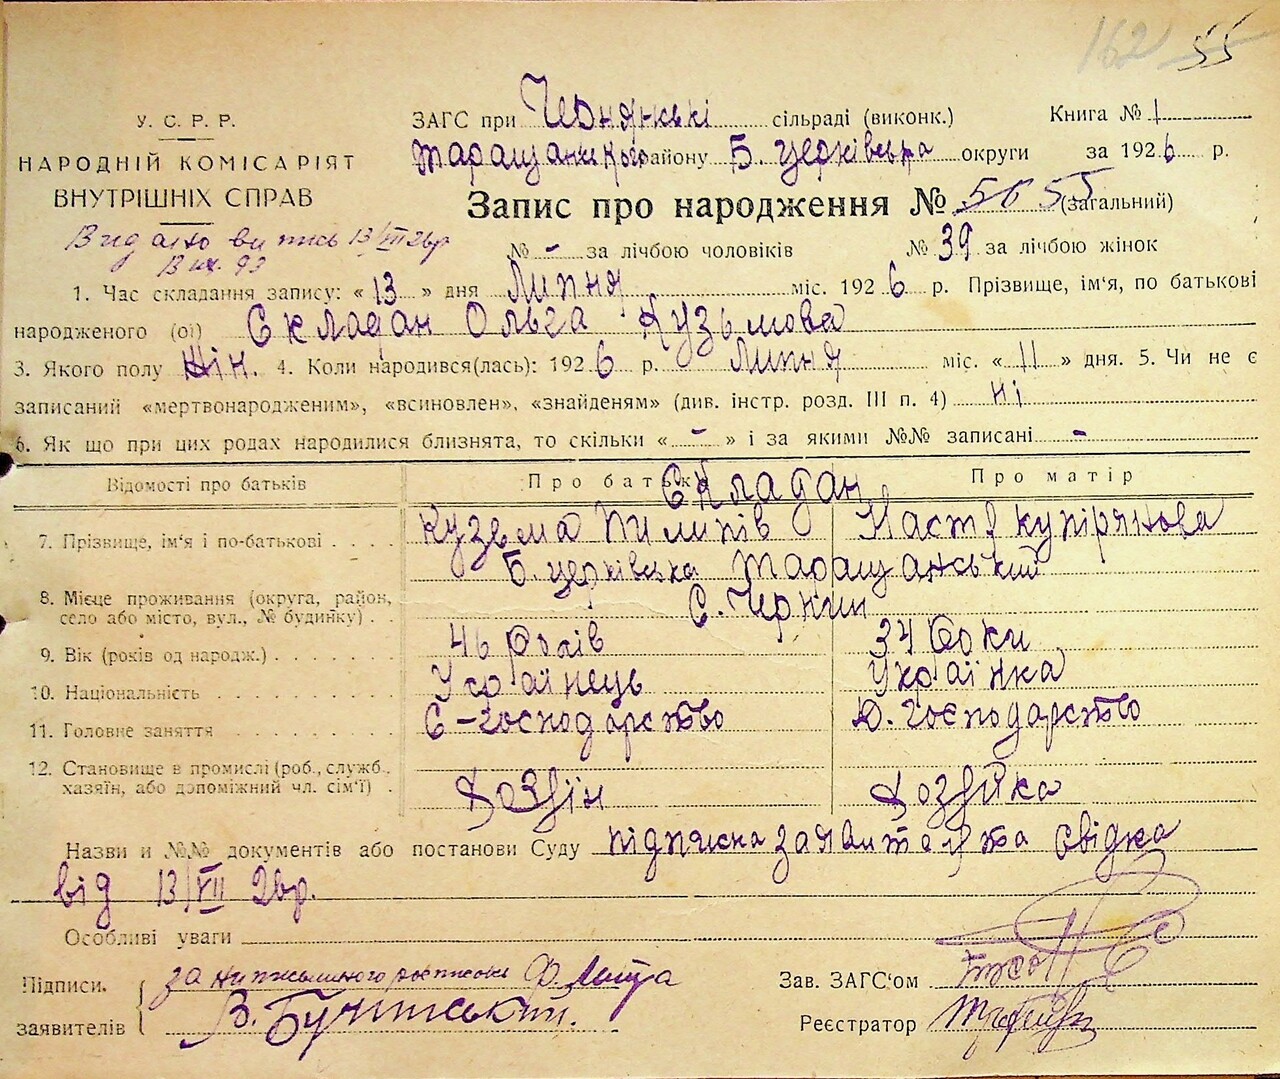 162 55
У. С. Р. Р.
НАРОДНІЙ КОМІСАРІЯТ
ВНУТРІШНІХ СПРАВ
Видано випись 13/VII 26р
Вих. 93
ЗАГС при Чернянські сільраді (виконк.) Книга № 1
Таращанського району Б. церківська округи за 1926 р.
Запис про народження № 56 55 (загальний)
№ - за лічбою чоловіків № 39 за лічбою жінок
1. Час складання запису: « 13 » дня Липня міс. 1926 р. Прізвище, ім'я, по батькові
народженого (ої) Складан Ольга Кузьмова
3. Якого полу жін. 4. Коли народився(лась): 1926 р. Липня міс. « 11 » дня. 5. Чи не є
записаний «мертвонародженим», «всиновлен», «знайденям» (див. інстр. розд. III п. 4) ні
6. Як що при цих родах народилися близнята, то скільки « - » і за якими №№ записані -
Відомості про батьків Про батька Про матір
Складан
7. Прізвище, ім'я і по-батькові Кузьма Пилипів Настя купріянова
Б. церківська Таращанський
8. Місце проживання (округа, район, село або місто, вул., № будинку) С. Чернин
9. Вік (років од народж.) 46 років 34 роки
10. Національність Українець Українка
11. Головне заняття С-господарство Д. господарство
12. Становище в промислі (роб., служб., хазяїн, або допоміжний чл. сім'ї) Хозяїн Хозяйка
Назви и №№ документів або постанови Суду підписка заявителя та свідка
від 13/VII 26р.
Особливі уваги
Підписи заявителів за неписьменного росписався Ф.
В.
Зав. ЗАГС'ом
Реєстратор